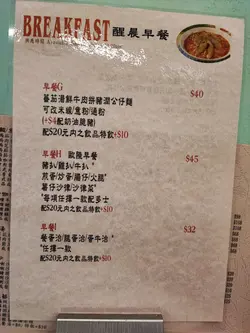 BREAKFAST 醒晨早餐
早餐G $40
蕃茄湯鮮牛肉拼豬潤公仔麵
可改米線/意粉/通粉
(+$4配奶油脆豬)
配$20元內之飲品特飲+$10
早餐H 歐陸早餐 $45
豬扒/雞扒/牛扒
煎蛋/炒蛋/腸仔/火腿
薯仔沙律/沙律菜
*每項任擇一款配多士
配$20元內之飲品特飲+$10
早餐I $32
餐蛋治/腿蛋治/蛋牛治
*任擇一款
配$20元內之飲品特飲+$10